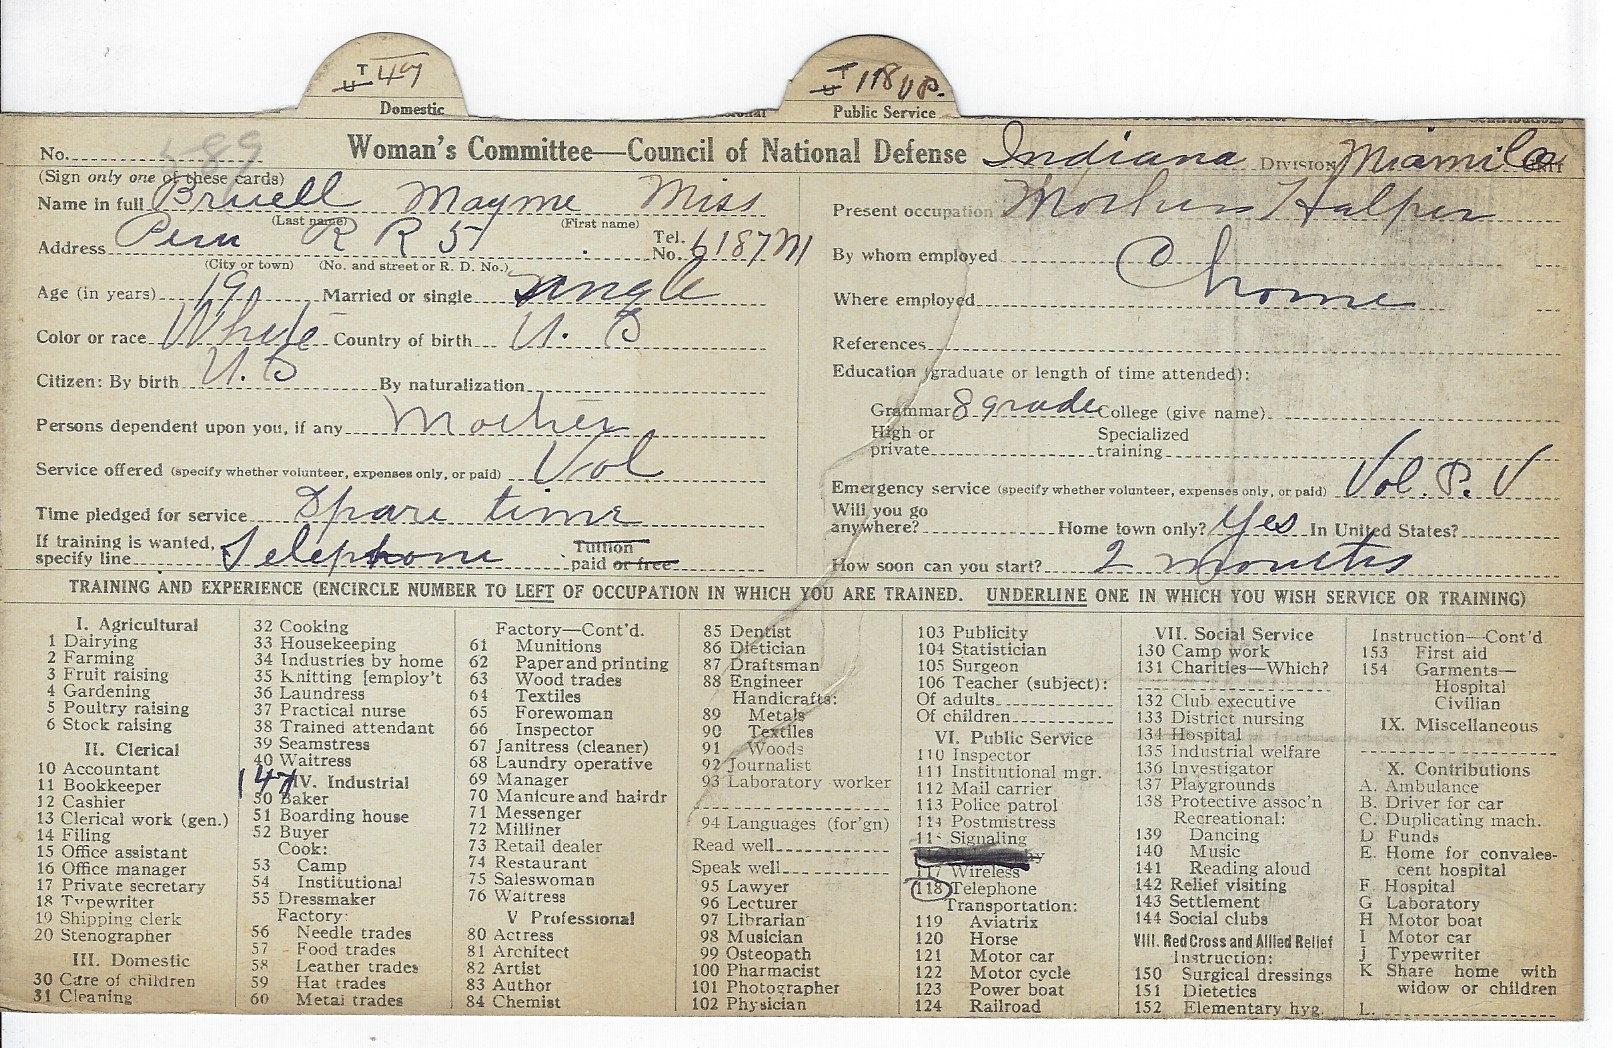 T U 47
Domestic
T U 118 V P.
Public Service
No. 589
Woman's Committee—Council of National Defense Indiana DIVISION Miami Co. UNIT
(Sign only one of these cards)
Name in full Bruell Mayme Miss
(Last name) (First name)
Address Peru R R 5 Tel. No. 6187 M
(City or town) (No. and street or R. D. No.)
Age (in years) 19 Married or single single
Color or race White Country of birth U. S
Citizen: By birth U. S By naturalization
Persons dependent upon you, if any Mother
Service offered (specify whether volunteer, expenses only, or paid) Vol
Time pledged for service Spare time
If training is wanted, specify line Telephone Tuition paid or free
Present occupation Mothers Halper
By whom employed
Where employed home
References
Education (graduate or length of time attended):
Grammar 8 grade College (give name)
High or private Specialized training
Emergency service (specify whether volunteer, expenses only, or paid) Vol. P. V
Will you go anywhere? Home town only? Yes In United States?
How soon can you start? 2 months
TRAINING AND EXPERIENCE (ENCIRCLE NUMBER TO LEFT OF OCCUPATION IN WHICH YOU ARE TRAINED. UNDERLINE ONE IN WHICH YOU WISH SERVICE OR TRAINING)
I. Agricultural
1 Dairying
2 Farming
3 Fruit raising
4 Gardening
5 Poultry raising
6 Stock raising
II. Clerical
10 Accountant
11 Bookkeeper
12 Cashier
13 Clerical work (gen.)
14 Filing
15 Office assistant
16 Office manager
17 Private secretary
18 Typewriter
19 Shipping clerk
20 Stenographer
III. Domestic
30 Care of children
31 Cleaning
32 Cooking
33 Housekeeping
34 Industries by home
35 Knitting [employ't
36 Laundress
37 Practical nurse
38 Trained attendant
39 Seamstress
40 Waitress
147
IV. Industrial
50 Baker
51 Boarding house
52 Buyer
Cook:
53 Camp
54 Institutional
55 Dressmaker
Factory:
56 Needle trades
57 Food trades
58 Leather trades
59 Hat trades
60 Metal trades
Factory—Cont'd.
61 Munitions
62 Paper and printing
63 Wood trades
64 Textiles
65 Forewoman
66 Inspector
67 Janitress (cleaner)
68 Laundry operative
69 Manager
70 Manicure and hairdr
71 Messenger
72 Milliner
73 Retail dealer
74 Restaurant
75 Saleswoman
76 Waitress
V Professional
80 Actress
81 Architect
82 Artist
83 Author
84 Chemist
85 Dentist
86 Dietician
87 Draftsman
88 Engineer
Handicrafts:
89 Metals
90 Textiles
91 Woods
92 Journalist
93 Laboratory worker
94 Languages (for'gn)
Read well
Speak well
95 Lawyer
96 Lecturer
97 Librarian
98 Musician
99 Osteopath
100 Pharmacist
101 Photographer
102 Physician
103 Publicity
104 Statistician
105 Surgeon
106 Teacher (subject):
Of adults
Of children
VI. Public Service
110 Inspector
111 Institutional mgr.
112 Mail carrier
113 Police patrol
114 Postmistress
115 Signaling
117 Wireless
118 Telephone
Transportation:
119 Aviatrix
120 Horse
121 Motor car
122 Motor cycle
123 Power boat
124 Railroad
VII. Social Service
130 Camp work
131 Charities—Which?
132 Club executive
133 District nursing
134 Hospital
135 Industrial welfare
136 Investigator
137 Playgrounds
138 Protective assoc'n
Recreational:
139 Dancing
140 Music
141 Reading aloud
142 Relief visiting
143 Settlement
144 Social clubs
VIII. Red Cross and Allied Relief
Instruction:
150 Surgical dressings
151 Dietetics
152 Elementary hyg.
Instruction—Cont'd
153 First aid
154 Garments—
Hospital
Civilian
IX. Miscellaneous
X. Contributions
A. Ambulance
B. Driver for car
C. Duplicating mach.
D Funds
E. Home for convales-
cent hospital
F. Hospital
G Laboratory
H Motor boat
I Motor car
J Typewriter
K Share home with
widow or children
L.